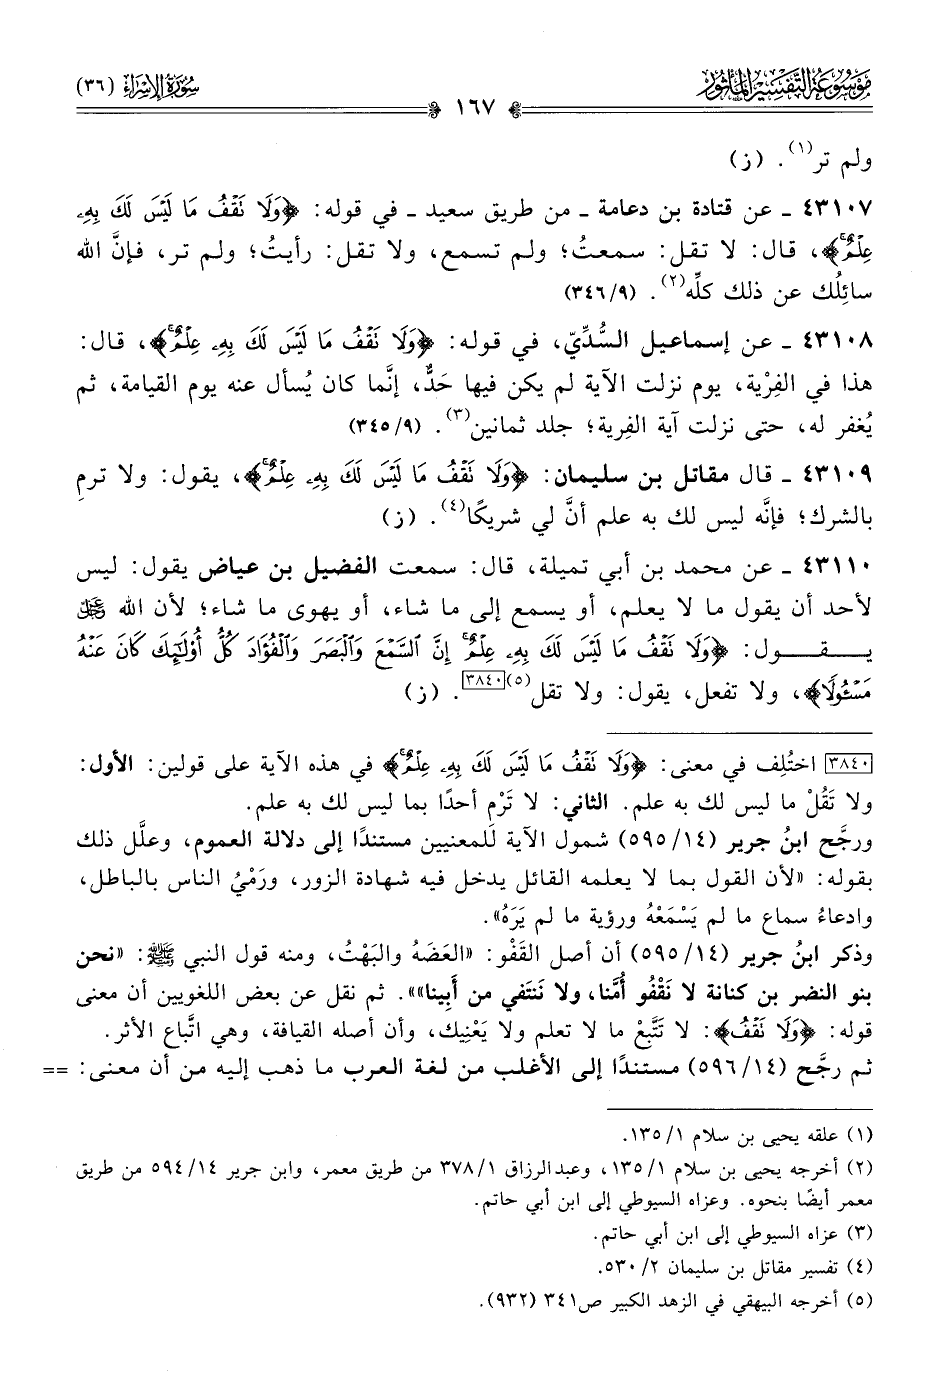 موسوعة التفسير المأثور
١٦٧
سورة الإسراء (٣٦)
ولم تر(١). (ز)
٤٣١٠٧ ـ عن قتادة بن دعامة ـ من طريق سعيد ـ في قوله: ﴿وَلَا نَقْفُ مَا لَيْسَ لَكَ بِهِۦ
عِلْمٌ﴾، قال: لا تقل: سمعتُ؛ ولم تسمع، ولا تقل: رأيتُ؛ ولم تر، فإنَّ الله
سائِلُك عن ذلك كلِّه(٢). (٣٤٦/٩)
٤٣١٠٨ ـ عن إسماعيل السُّدِّيّ، في قوله: ﴿وَلَا نَقْفُ مَا لَيْسَ لَكَ بِهِۦ عِلْمٌ﴾، قال:
هذا في الفِرْية، يوم نزلت الآية لم يكن فيها حَدٌّ، إنَّما كان يُسأل عنه يوم القيامة، ثم
يُغفر له، حتى نزلت آية الفِرية؛ جلد ثمانين(٣). (٣٤٥/٩)
٤٣١٠٩ ـ قال مقاتل بن سليمان: ﴿وَلَا نَقْفُ مَا لَيْسَ لَكَ بِهِۦ عِلْمٌ﴾، يقول: ولا ترمِ
بالشرك؛ فإنَّه ليس لك به علم أنَّ لي شريكًا(٤). (ز)
٤٣١١٠ ـ عن محمد بن أبي تميلة، قال: سمعت الفضيل بن عياض يقول: ليس
لأحد أن يقول ما لا يعلم، أو يسمع إلى ما شاء، أو يهوى ما شاء؛ لأن الله ﷿
يـــقـــول: ﴿وَلَا نَقْفُ مَا لَيْسَ لَكَ بِهِۦ عِلْمٌ إِنَّ ٱلسَّمْعَ وَٱلْبَصَرَ وَٱلْفُؤَادَ كُلُّ أُوْلَٰٓئِكَ كَانَ عَنْهُ
مَسْـُٔولًا﴾، ولا تفعل، يقول: ولا تقل(٥)[٣٨٤٠]. (ز)
[٣٨٤٠] اختُلِف في معنى: ﴿وَلَا نَقْفُ مَا لَيْسَ لَكَ بِهِۦ عِلْمٌ﴾ في هذه الآية على قولين: الأول:
ولا تَقُلْ ما ليس لك به علم. الثاني: لا تَرْمِ أحدًا بما ليس لك به علم.
ورجَّح ابنُ جرير (٥٩٥/١٤) شمول الآية لَلمعنيين مستندًا إلى دلالة العموم، وعلَّل ذلك
بقوله: «لأن القول بما لا يعلمه القائل يدخل فيه شهادة الزور، ورَمْيُ الناس بالباطل،
وادعاءُ سماع ما لم يَسْمَعْهُ ورؤية ما لم يَرَهُ».
وذكر ابنُ جرير (٥٩٥/١٤) أن أصل القَفْو: «العَضَهُ والبَهْتُ، ومنه قول النبي ﷺ: «نحن
بنو النضر بن كنانة لا نَقْفُو أمَّنا، ولا نَنتَفي من أبِينا»». ثم نقل عن بعض اللغويين أن معنى
قوله: ﴿وَلَا نَقْفُ﴾: لا تَتَّبِعْ ما لا تعلم ولا يَعْنِيك، وأن أصله القيافة، وهي اتَّباع الأثر.
ثم رجَّح (٥٩٦/١٤) مستندًا إلى الأغلب من لغة العرب ما ذهب إليه من أن معنى: ==
(١) علقه يحيى بن سلام ١٣٥/١.
(٢) أخرجه يحيى بن سلام ١٣٥/١، وعبدالرزاق ٣٧٨/١ من طريق معمر، وابن جرير ٥٩٤/١٤ من طريق
معمر أيضًا بنحوه. وعزاه السيوطي إلى ابن أبي حاتم.
(٣) عزاه السيوطي إلى ابن أبي حاتم.
(٤) تفسير مقاتل بن سليمان ٥٣٠/٢.
(٥) أخرجه البيهقي في الزهد الكبير ص٣٤١ (٩٣٢).